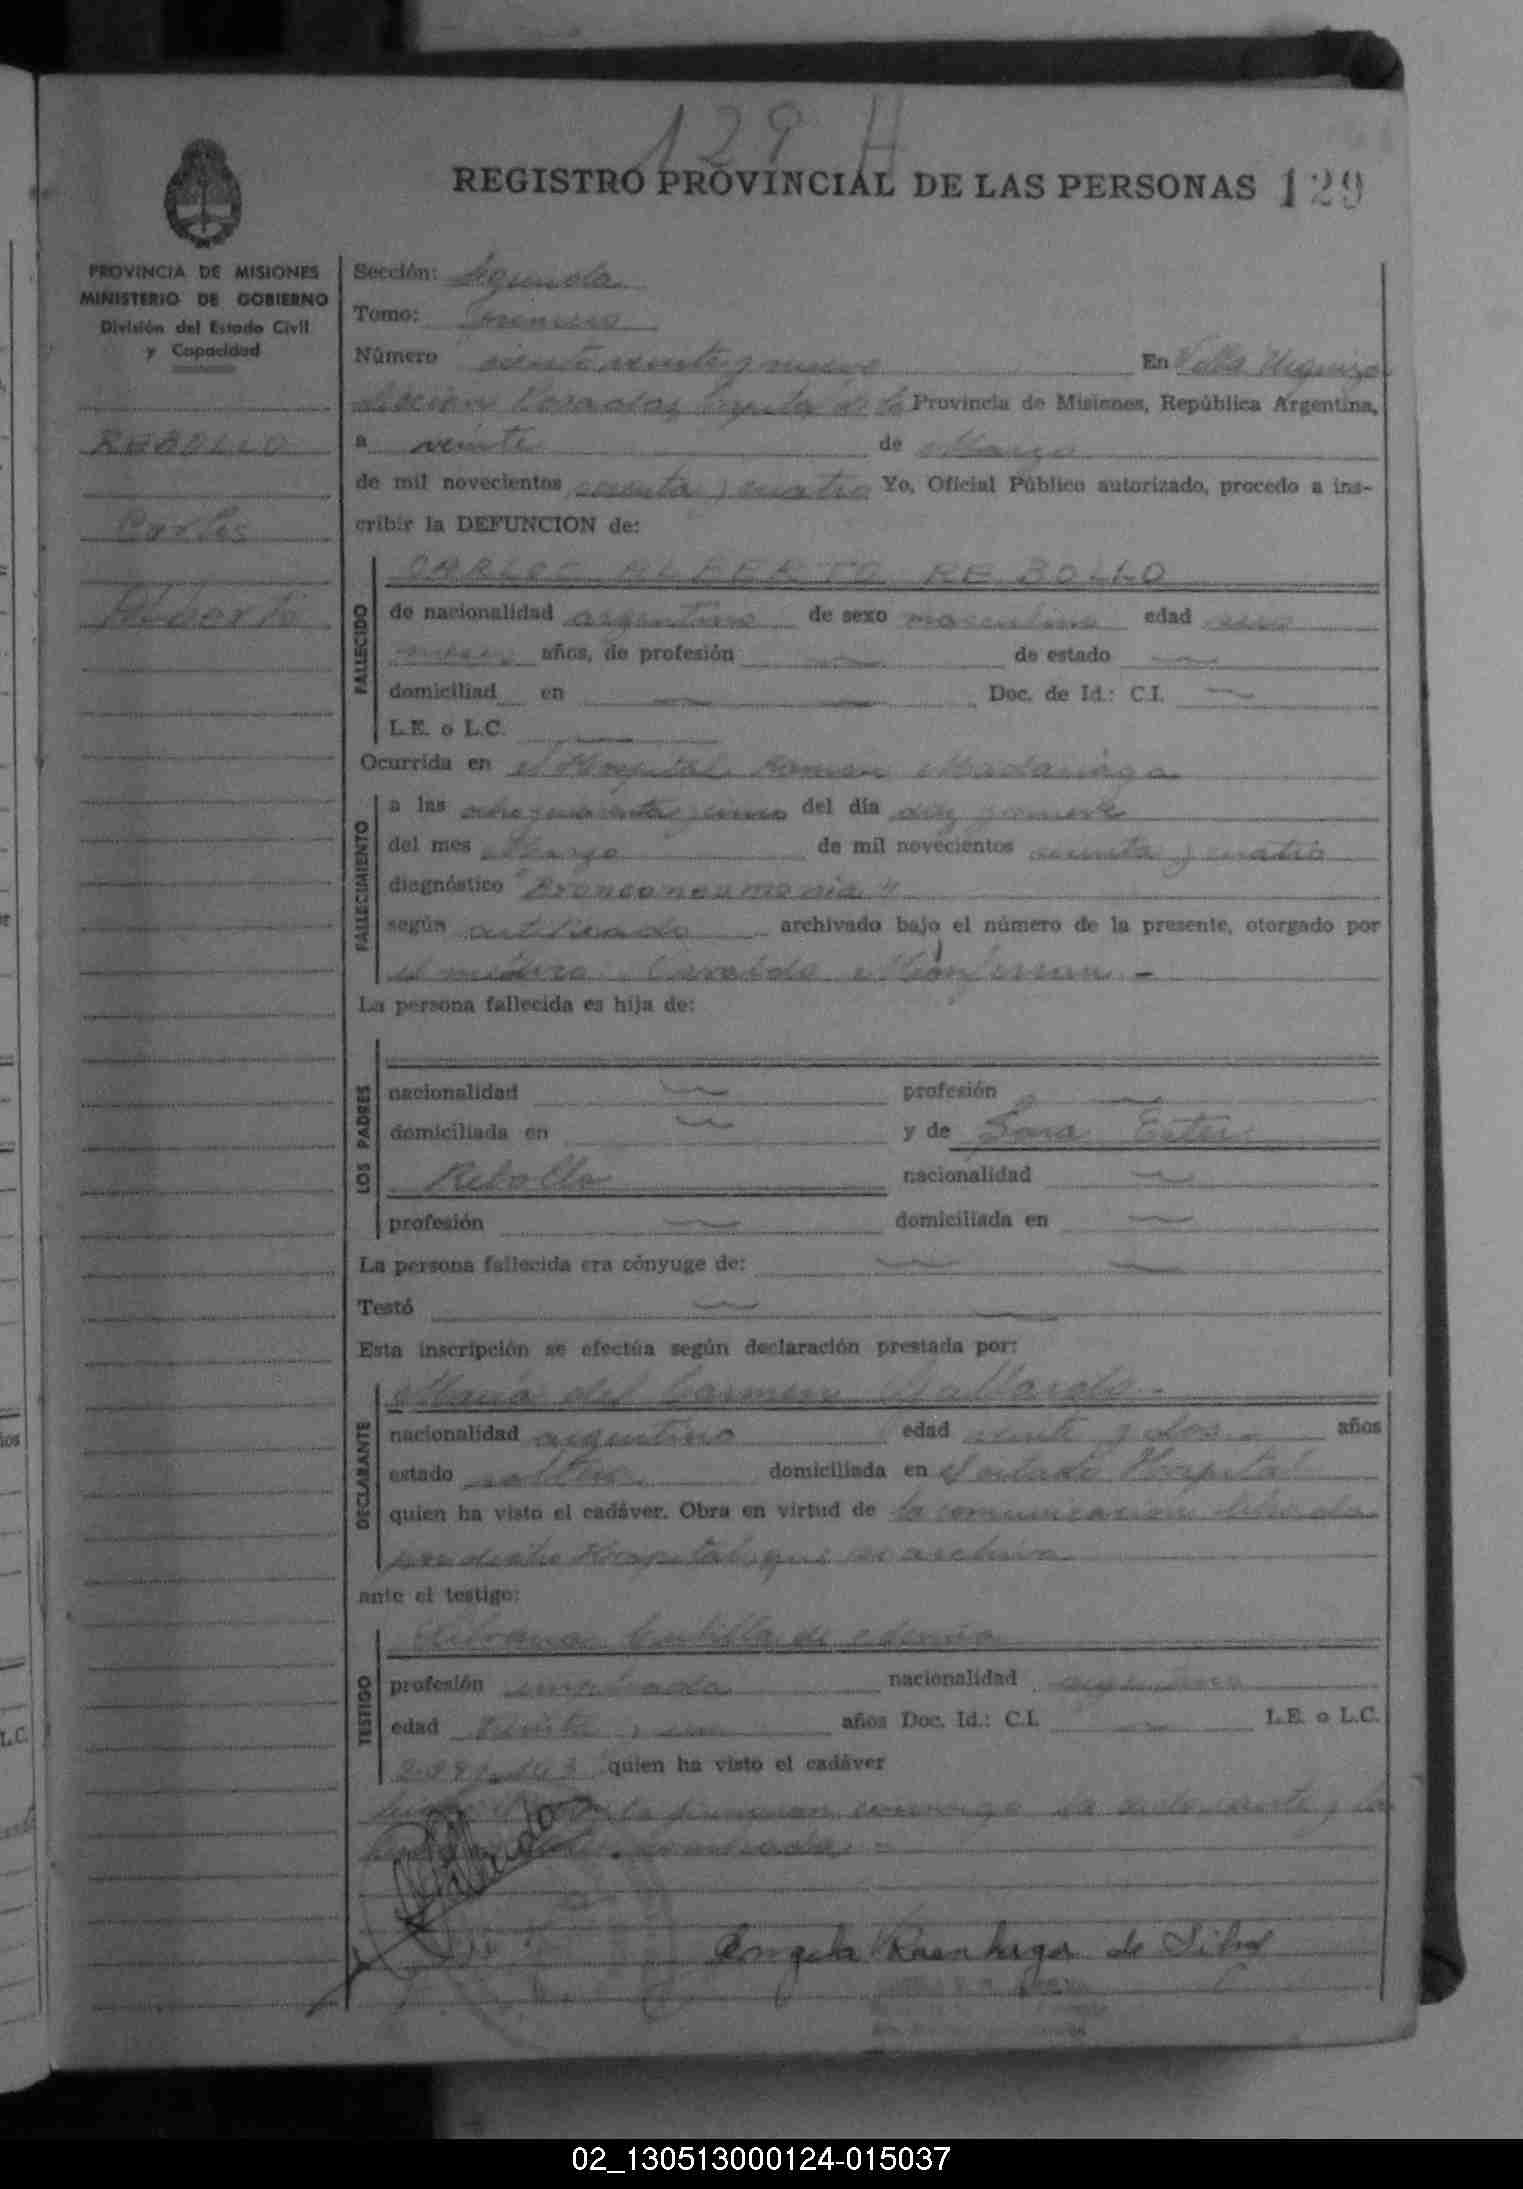 129 H
REGISTRO PROVINCIAL DE LAS PERSONAS 129
PROVINCIA DE MISIONES
MINISTERIO DE GOBIERNO
División del Estado Civil
y Capacidad
REBOLLO
Carlos
Alberto
Sección: Segunda
Tomo: Primero
Número ciento veinte y nueve En Villa Urquiza
Sección Posadas Capital de la Provincia de Misiones, República Argentina,
a veinte de Marzo
de mil novecientos sesenta y cuatro Yo, Oficial Público autorizado, procedo a ins-
cribir la DEFUNCION de:
FALLECIDO
CARLOS ALBERTO REBOLLO
de nacionalidad argentino de sexo masculino edad
meses años, de profesión de estado
domiciliad en Doc. de Id.: C.I.
L.E. o L.C.
Ocurrida en el Hospital Ramón Madariaga
FALLECIMIENTO
a las ocho y cuarenta y cinco del día diez y nueve
del mes Marzo de mil novecientos sesenta y cuatro
diagnóstico "Bronconeumonia"
según certificado archivado bajo el número de la presente, otorgado por
el médico Osvaldo
La persona fallecida es hija de:
LOS PADRES
nacionalidad profesión
domiciliada en y de Sara Ester
Rebollo nacionalidad
profesión domiciliada en
La persona fallecida era cónyuge de:
Testó
Esta inscripción se efectúa según declaración prestada por:
DECLARANTE
María del Carmen Gallardo
nacionalidad argentina edad veinte y dos años
estado soltera domiciliada en el citado Hospital
quien ha visto el cadáver. Obra en virtud de la comunicación librada
por dicho Hospital, que se archiva
ante el testigo:
TESTIGO
de
profesión empleada nacionalidad argentina
edad treinta y un años Doc. Id.: C.I. L.E. o L.C.
quien ha visto el cadáver
la firman conmigo la declarante y la
Angela de Silva
02_130513000124-015037